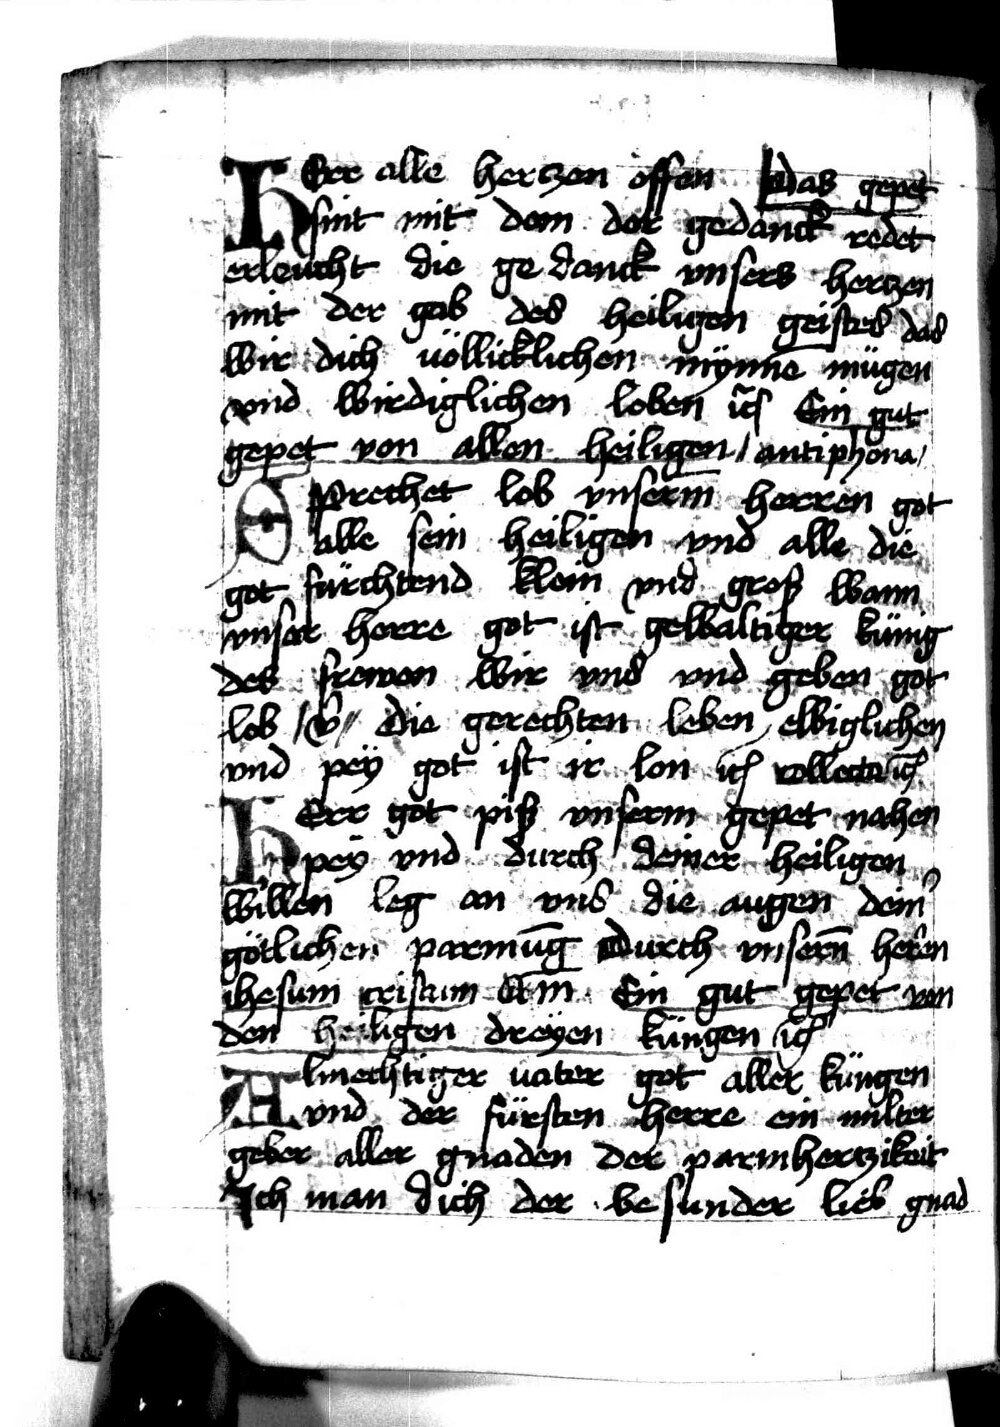 HErr alle hertzen offen das gepet
sint mit dem der gedanck redet
erleucht die gedanck vnsers hertzen
mit der gab des heiligen geistes das
wir dich völlicklichen mynne mügen
vnd wirdiglichen loben Ein gut
gepet von allen heiligen / antiphona /
SPrechet lob vnserm herren got
alle sein heiligen vnd alle die
got fürchtend klein vnd groß wann
vnser herre got ist gewaltiger künig
des frewen wir vns vnd geben got
lob / v̄ / die gerechten leben ewiglichen
vnd pey got ist ir lon collecta
HErr got piß vnserm gepet nahen
pey vnd durch deiner heiligen
willen leg an vns die augen dein̄
götlichen parmūg durch vnsern̄ herēn
ihesum cristum Am̄ Ein gut gepet von
den heiligen dreyen küngen
Almechtiger uater got aller küngen
vnd der fürsten herre ein milter
geber aller gnaden der parmhertzikeit
Ich man dich der besunder lieb gnad